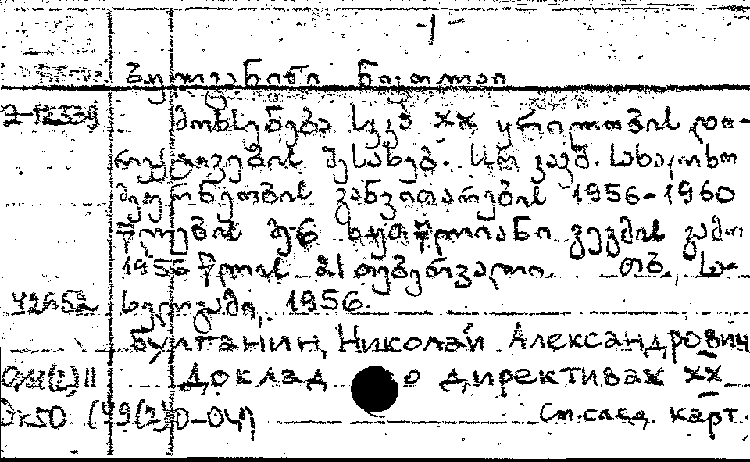 -1-
ბულგანინი ნიკოლაი
მოხსენება სკკპ XX ყრილობის დი-
რექტივების შესახებ. სსრ კავშ. სახალხო
მეურნეობის განვითარების 1956-1960
წლების მე-6 ხუთწლიანი გეგმის გამო
1956 წლის 21 თებერვალი. თბ., სა-
42652 ხელგამი, 1956.
Булганин, Николай Александрович
Доклад о директивах XX
См. след. карт.